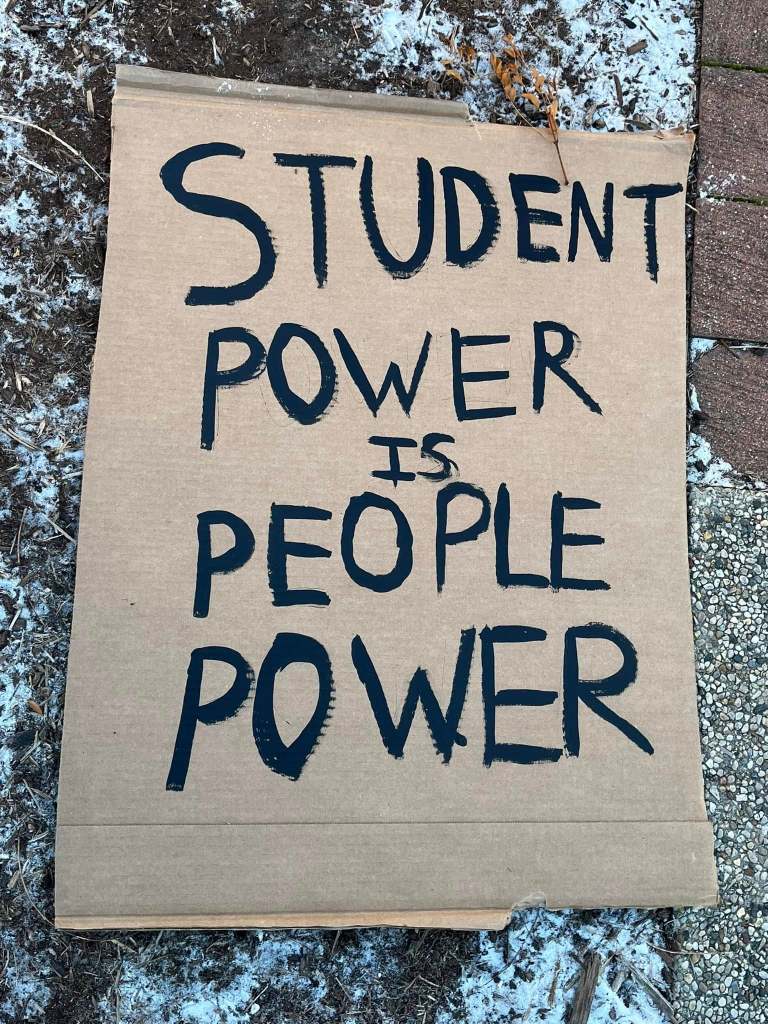 STUDENT
POWER
IS
PEOPLE
POWER